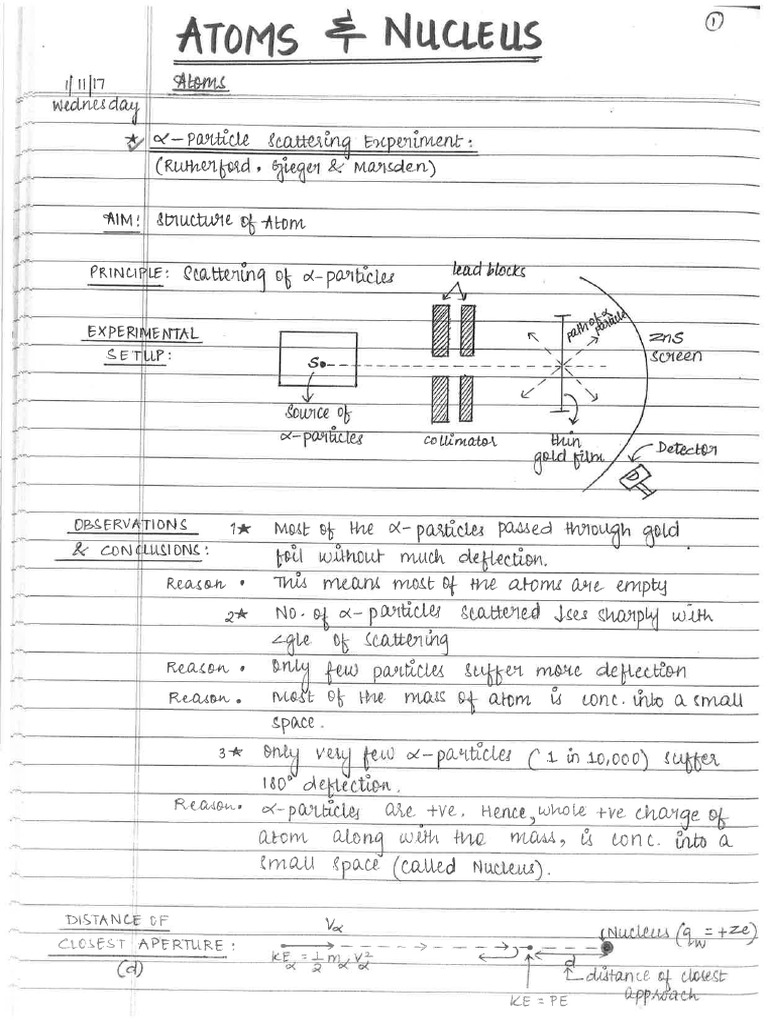 ATOMS & NUCLEUS
1
1/11/17
Wednesday
Atoms
* α-Particle Scattering Experiment:
(Rutherford, Gieger & Marsden)
AIM: Structure of Atom
PRINCIPLE: Scattering of α-particles
lead blocks
path of α
particle
EXPERIMENTAL
SETUP:
ZnS
screen
S
Source of
α-particles
collimator
thin
gold film
Detector
D
OBSERVATIONS
& CONCLUSIONS:
1* Most of the α-particles passed through gold
foil without much deflection.
Reason • This means most of the atoms are empty
2* No. of α-particles scattered ↓ses sharply with
∠gle of scattering
Reason • Only few particles suffer more deflection
Reason • Most of the mass of atom is conc. into a small
space.
3* Only very few α-particles (1 in 10,000) suffer
180° deflection.
Reason • α-particles are +ve. Hence, whole +ve charge of
atom along with the mass, is conc. into a
small space (called Nucleus).
DISTANCE OF
CLOSEST APERTURE:
(d)
Vα
KEα = 1/2 mα Vα²
Nucleus (qN = +Ze)
d
distance of closest
approach
KE = PE